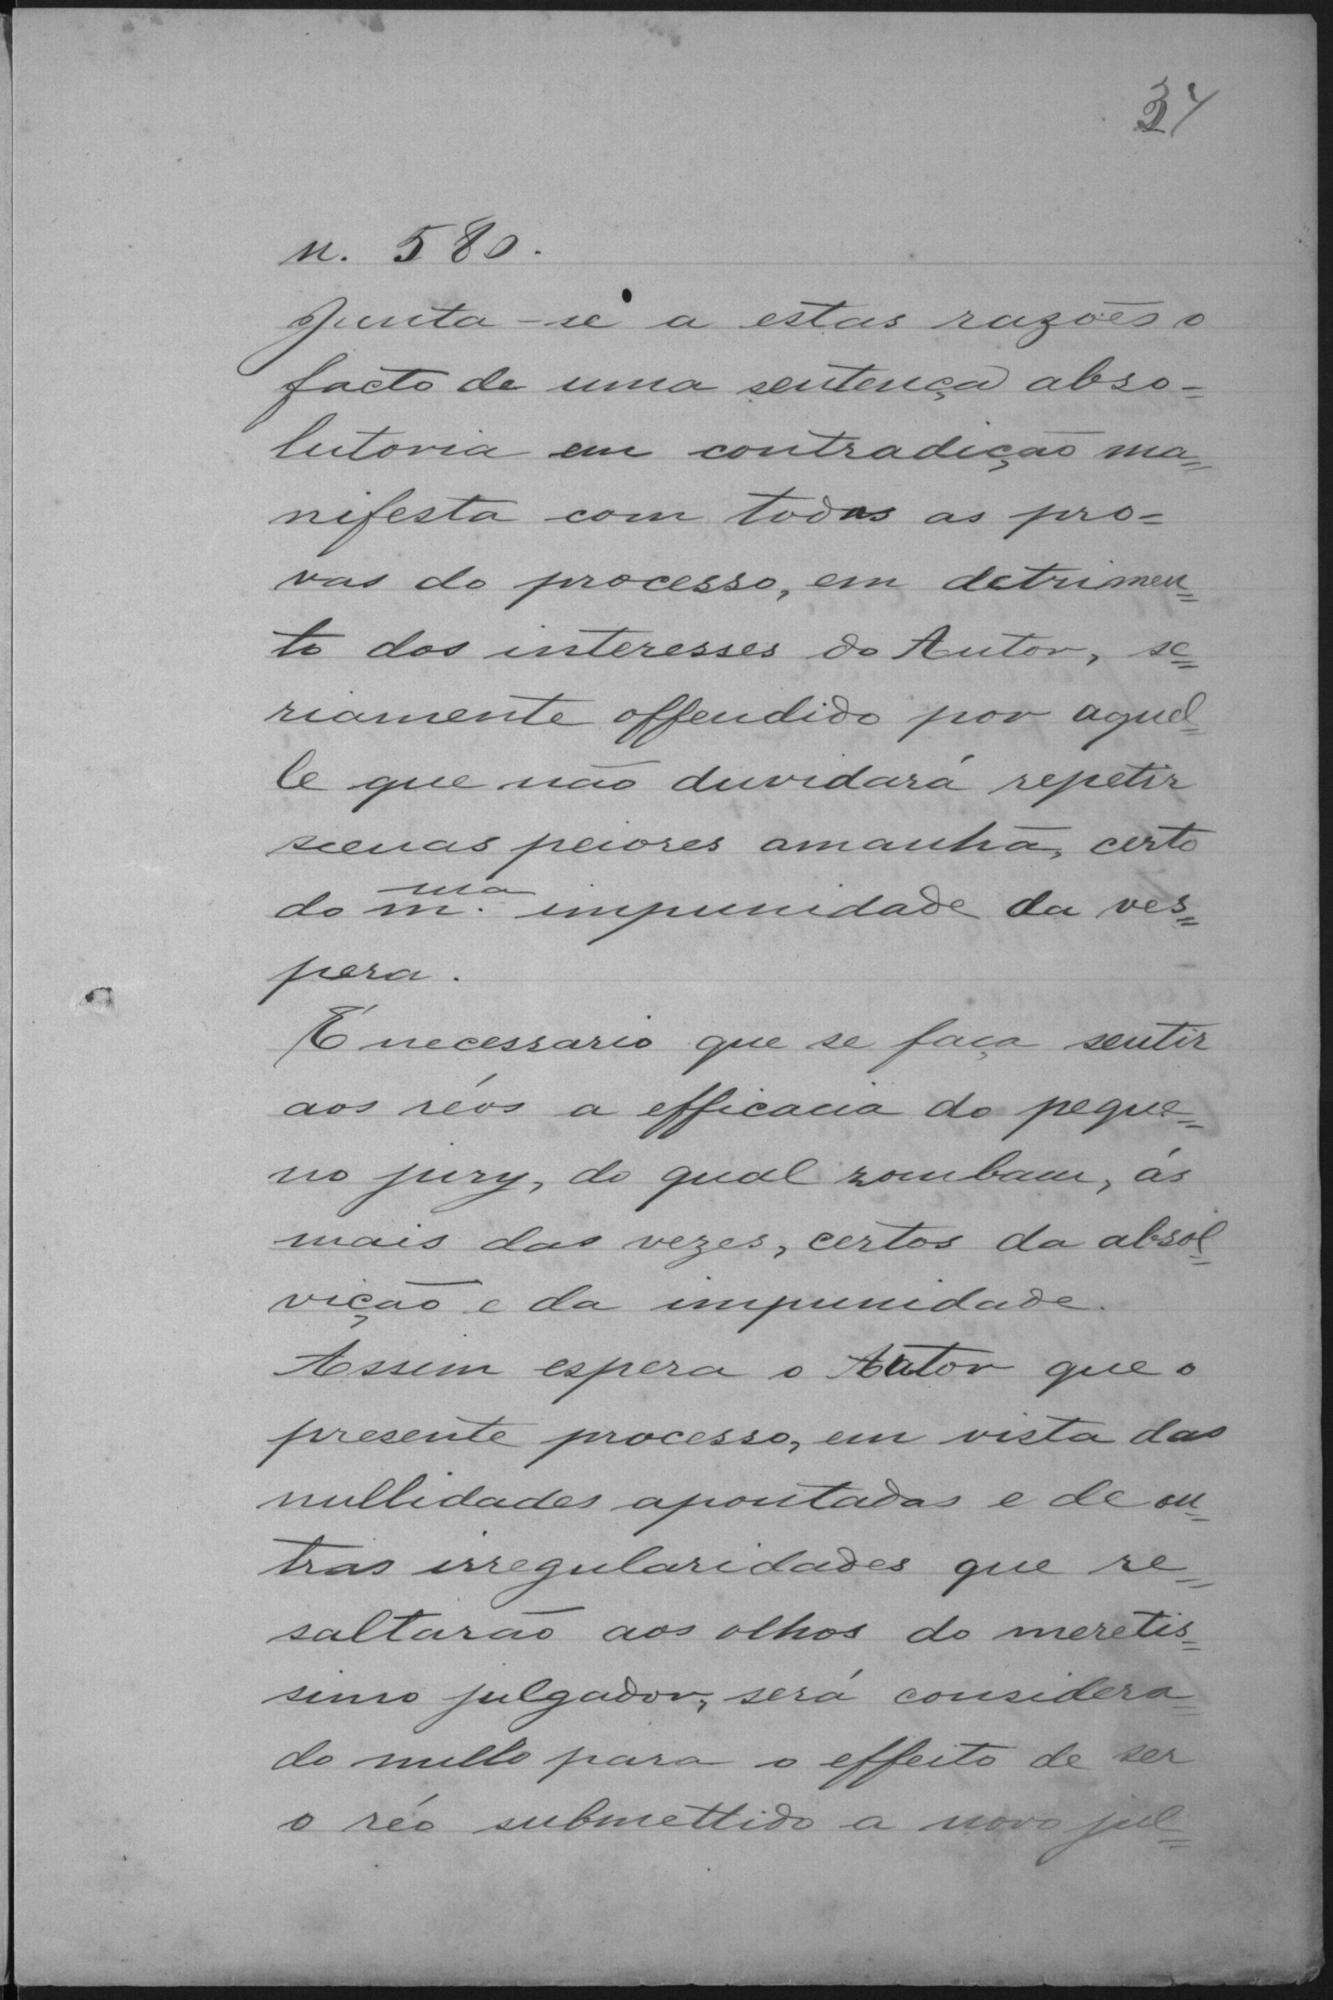 34
n. 580.
Junta-se a estas razões o
facto de uma sentença abso=
lutoria em contradicção ma=
nifesta com todas as pro=
vas do processo, em detrimen=
to dos interesses do Autor, se=
riamente offendido por aquel=
le que não duvidará repetir
scenas peiores amanhã, certo
do m.ma impunidade da ves=
pera.
É necessario que se faça sentir
aos réos a efficacia do peque=
no jury, do qual zombam, ás
mais das vezes, certos da absol=
vição e da impunidade.
Assim espera o Autor que o
presente processo, em vista das
nullidades apontadas e de ou=
tras irregularidades que re=
saltarão aos olhos do meretis=
simo julgador, será considera=
do nullo para o effeito de ser
o réo submettido a novo jul=